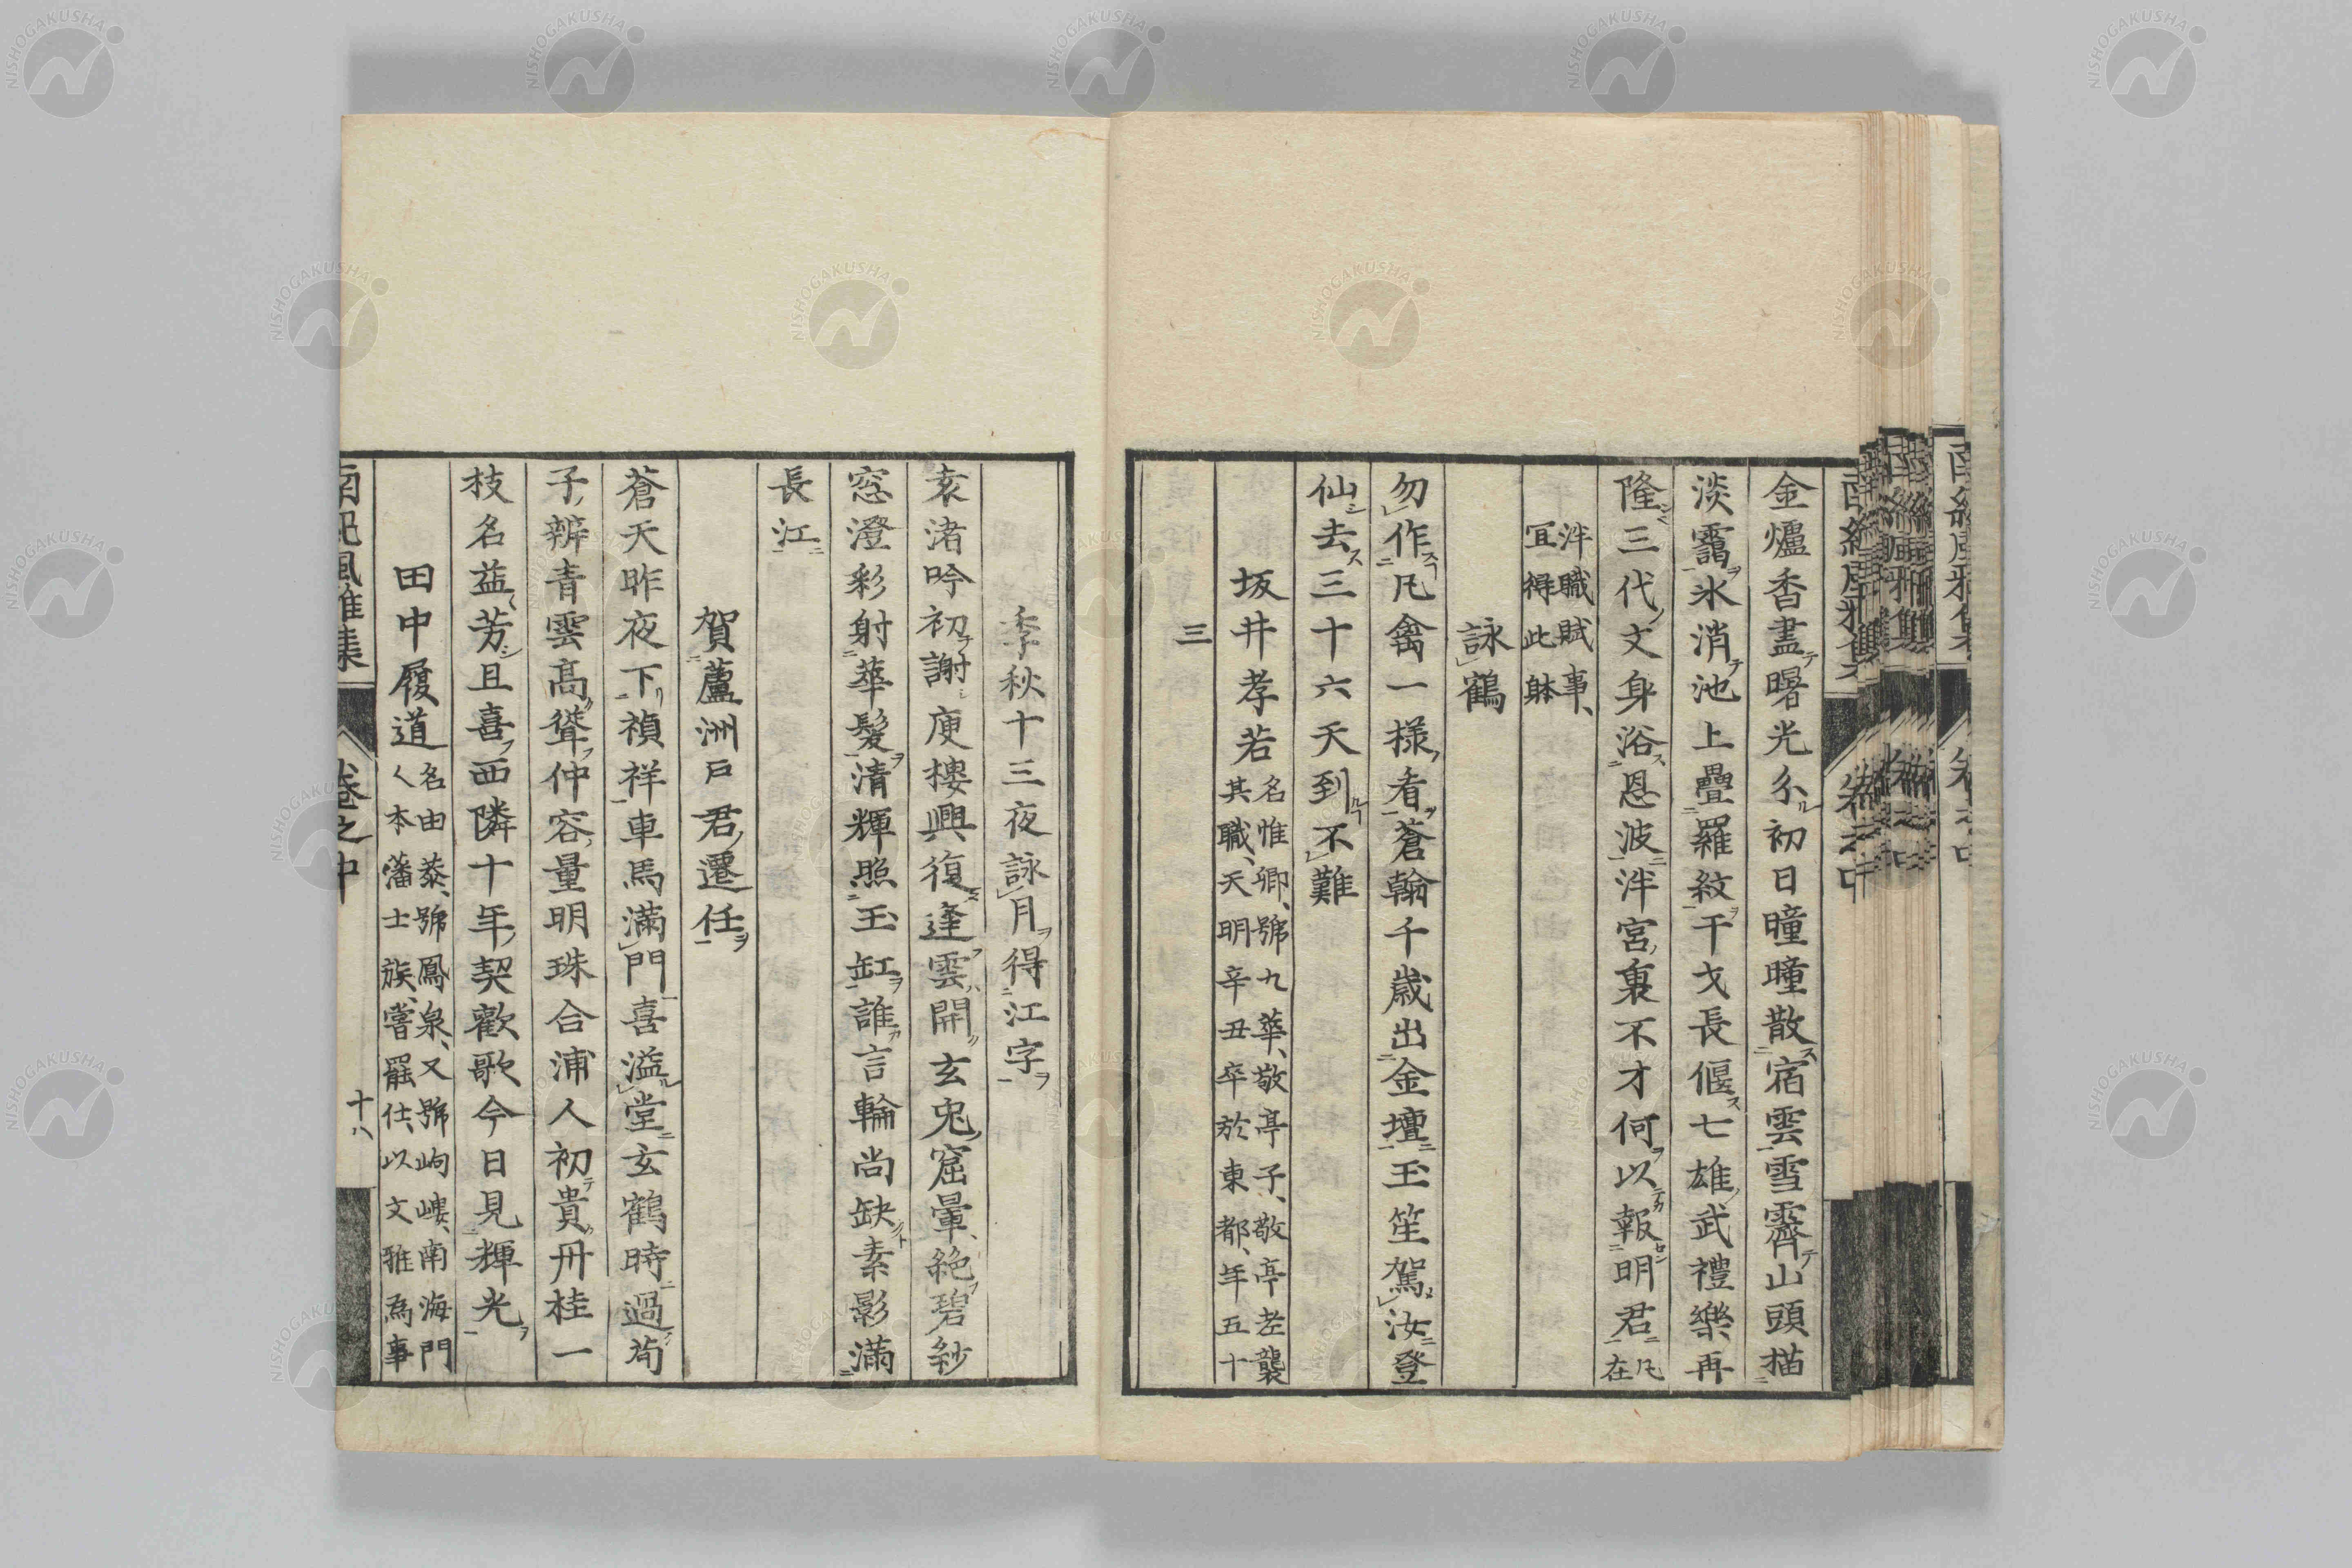 金爐香盡曙光分初日曈曈散宿雲雪霽山頭描
淡靄氷消池上疊羅紋干戈長偃七雄武禮樂再
隆三代文身浴恩波泮宮裏不才何以報明君凡在
泮職賦事、
冝得此躰
詠鶴
勿作凡禽一樣看蒼翰千歳出金壇玉笙駕汝登
仙去三十六天到不難
坂井孝若名惟卿、號九華、敬亭子、敬亭老襲
其職、天明辛丑卒於東都、年五十
三
季秋十三夜詠月得江字
袁渚吟初謝庾樓興復逢雲開玄兎窟暈絶碧紗
窓澄彩射華髮清輝照玉缸誰言輪尚缺素影滿
長江
賀蘆洲戸君遷任
蒼天昨夜下禎祥車馬滿門喜溢堂玄鶴時過荀
子辨青雲高聳仲容量明珠合浦人初貴丹桂一
枝名益芳且喜西隣十年契歡歌今日見輝光
田中履道名由恭、號鳳泉、又號岣嶁、南海門
人本藩士族、嘗罷仕、以文雅為事
南紀風雅集
卷之中
十八
NISHOGAKUSHA